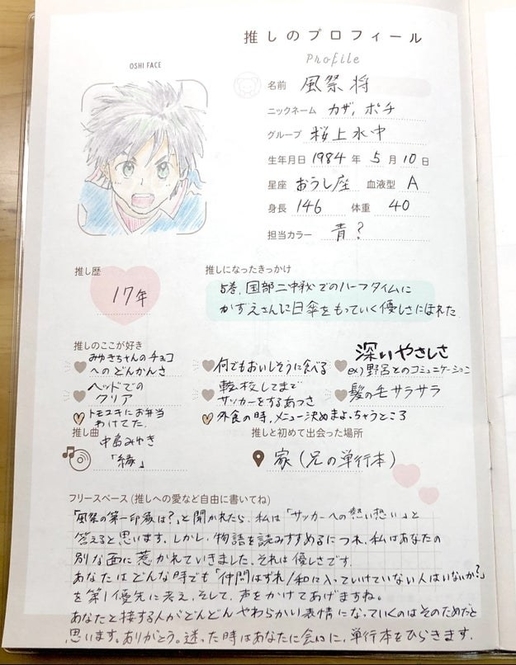 推しのプロフィール
Profile
OSHI FACE
名前 風祭 将
ニックネーム カザ、ポチ
グループ 桜上水中
生年月日 1984 年 5 月 10 日
星座 おうし座 血液型 A
身長 146 体重 40
担当カラー 青?
推し歴
17年
推しになったきっかけ
5巻、国部二中戦でのハーフタイムに
かずえさんに日傘をもっていく優しさにほれた
推しのここが好き
みゆきちゃんのチョコ
へのどんかんさ
ヘッドでの
クリア
トモユキにお弁当
わけてた
何でもおいしそうに食べる
転校してまで
サッカーをするあつさ
外食の時、メニュー決めまよっちゃうところ
深いやさしさ
ex)野呂とのコミュニケーション
髪の毛サラサラ
推し曲
中島みゆき
「縁」
推しと初めて出会った場所
家(兄の単行本)
フリースペース(推しへの愛など自由に書いてね)
「風祭の第一印象は?」と聞かれたら、私は「サッカーへの熱い想い」と
答えると思います。しかし、物語を読みすすめるにつれ、私はあなたの
別な面に惹かれていきました。それは優しさです。
あなたはどんな時でも「仲間はずれ/和に入っていけていない人はいないか?」
を第1優先に考え、そして、声をかけてあげますね。
あなたと接する人がどんどんやわらかい表情になっていくのはそのためだと
思います。ありがとう。迷った時はあなたに会いに、単行本をひらきます。